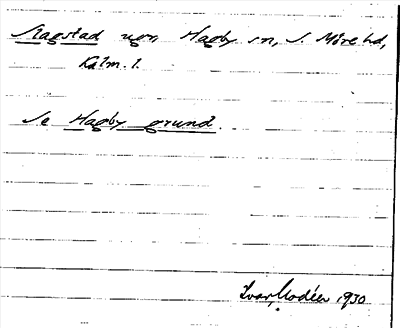 Slagstad ugn, Hagby sn, S. Möre hd,
Kalm. l.
Se Hagby grund.
Ivar Modéer 1930